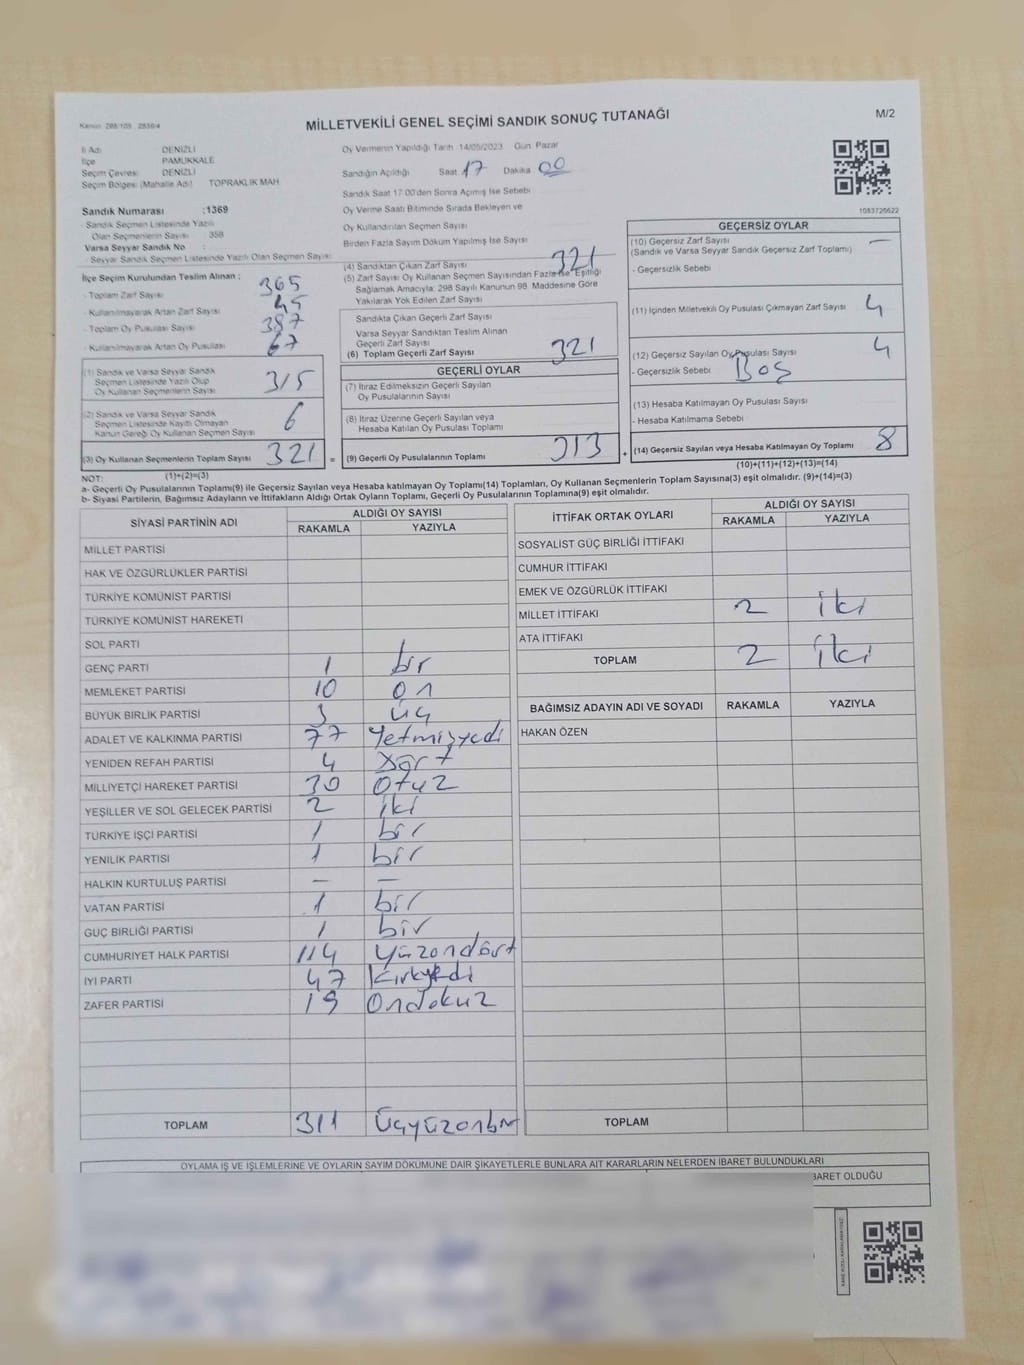 Kanun 298/105 2839/4
MİLLETVEKİLİ GENEL SEÇİMİ SANDIK SONUÇ TUTANAĞI
M/2
İl Adı DENİZLİ
İlçe PAMUKKALE
Seçim Çevresi DENİZLİ
Seçim Bölgesi (Mahalle Adı) TOPRAKLIK MAH
Oy Vermenin Yapıldığı Tarih 14/05/2023 Gün Pazar
Sandığın Açıldığı Saat 17 Dakika 00
Sandık Saat 17:00'den Sonra Açılmış İse Sebebi
Oy Verme Saati Bitiminde Sırada Bekleyen ve
Oy Kullandırılan Seçmen Sayısı
Birden Fazla Sayım Döküm Yapılmış İse Sayısı
1053726622
Sandık Numarası :1369
- Sandık Seçmen Listesinde Yazılı
Olan Seçmenlerin Sayısı 358
Varsa Seyyar Sandık No :
- Seyyar Sandık Seçmen Listesinde Yazılı Olan Seçmen Sayısı
İlçe Seçim Kurulundan Teslim Alınan :
- Toplam Zarf Sayısı 365
- Kullanılmayarak Artan Zarf Sayısı 45
- Toplam Oy Pusulası Sayısı 387
- Kullanılmayarak Artan Oy Pusulası 67
(1) Sandık ve Varsa Seyyar Sandık
Seçmen Listesinde Yazılı Olup
Oy Kullanan Seçmenlerin Sayısı 315
(2) Sandık ve Varsa Seyyar Sandık
Seçmen Listesinde Kayıtlı Olmayan
Kanun Gereği Oy Kullanan Seçmen Sayısı 6
(3) Oy Kullanan Seçmenlerin Toplam Sayısı 321
(1)+(2)=(3)
(4) Sandıktan Çıkan Zarf Sayısı 321
(5) Zarf Sayısı Oy Kullanan Seçmen Sayısından Fazla İse Eşitliği
Sağlamak Amacıyla; 298 Sayılı Kanunun 98. Maddesine Göre
Yakılarak Yok Edilen Zarf Sayısı
Sandıkta Çıkan Geçerli Zarf Sayısı
Varsa Seyyar Sandıktan Teslim Alınan
Geçerli Zarf Sayısı
(6) Toplam Geçerli Zarf Sayısı 321
GEÇERLİ OYLAR
(7) İtiraz Edilmeksizin Geçerli Sayılan
Oy Pusulalarının Sayısı
(8) İtiraz Üzerine Geçerli Sayılan veya
Hesaba Katılan Oy Pusulası Toplamı
= (9) Geçerli Oy Pusulalarının Toplamı 313 +
GEÇERSİZ OYLAR
(10) Geçersiz Zarf Sayısı —
(Sandık ve Varsa Seyyar Sandık Geçersiz Zarf Toplamı)
- Geçersizlik Sebebi
(11) İçinden Milletvekili Oy Pusulası Çıkmayan Zarf Sayısı 4
(12) Geçersiz Sayılan Oy Pusulası Sayısı 4
- Geçersizlik Sebebi BOŞ
(13) Hesaba Katılmayan Oy Pusulası Sayısı
- Hesaba Katılmama Sebebi
(14) Geçersiz Sayılan veya Hesaba Katılmayan Oy Toplamı 8
(10)+(11)+(12)+(13)=(14)
NOT:
a- Geçerli Oy Pusulalarının Toplamı(9) ile Geçersiz Sayılan veya Hesaba katılmayan Oy Toplamı(14) Toplamları, Oy Kullanan Seçmenlerin Toplam Sayısına(3) eşit olmalıdır. (9)+(14)=(3)
b- Siyasi Partilerin, Bağımsız Adayların ve İttifakların Aldığı Ortak Oyların Toplamı, Geçerli Oy Pusulalarının Toplamına(9) eşit olmalıdır.
SİYASİ PARTİNİN ADI ALDIĞI OY SAYISI
RAKAMLA YAZIYLA
MİLLET PARTİSİ
HAK VE ÖZGÜRLÜKLER PARTİSİ
TÜRKİYE KOMÜNİST PARTİSİ
TÜRKİYE KOMÜNİST HAREKETİ
SOL PARTİ
GENÇ PARTİ 1 bir
MEMLEKET PARTİSİ 10 on
BÜYÜK BİRLİK PARTİSİ 3 üç
ADALET VE KALKINMA PARTİSİ 77 Yetmişyedi
YENİDEN REFAH PARTİSİ 4 Dört
MİLLİYETÇİ HAREKET PARTİSİ 30 Otuz
YEŞİLLER VE SOL GELECEK PARTİSİ 2 iki
TÜRKİYE İŞÇİ PARTİSİ 1 bir
YENİLİK PARTİSİ 1 bir
HALKIN KURTULUŞ PARTİSİ — —
VATAN PARTİSİ 1 bir
GÜÇ BİRLİĞİ PARTİSİ 1 bir
CUMHURİYET HALK PARTİSİ 114 Yüzondört
İYİ PARTİ 47 Kırkyedi
ZAFER PARTİSİ 19 Ondokuz
TOPLAM 311 Üçyüzonbir
İTTİFAK ORTAK OYLARI ALDIĞI OY SAYISI
RAKAMLA YAZIYLA
SOSYALİST GÜÇ BİRLİĞİ İTTİFAKI
CUMHUR İTTİFAKI
EMEK VE ÖZGÜRLÜK İTTİFAKI
MİLLET İTTİFAKI 2 iki
ATA İTTİFAKI
TOPLAM 2 iki
BAĞIMSIZ ADAYIN ADI VE SOYADI RAKAMLA YAZIYLA
HAKAN ÖZEN
TOPLAM
OYLAMA İŞ VE İŞLEMLERİNE VE OYLARIN SAYIM DÖKÜMÜNE DAİR ŞİKAYETLERLE BUNLARA AİT KARARLARIN NELERDEN İBARET BULUNDUKLARI
BARET OLDUĞU